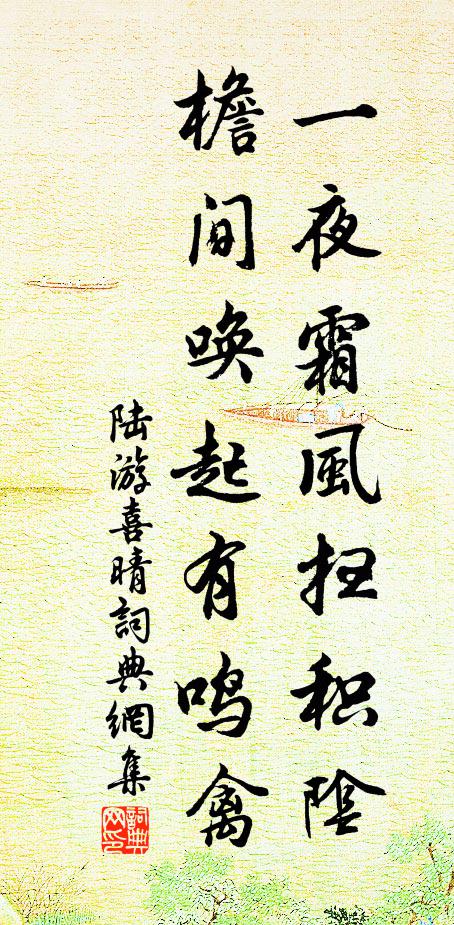 一夜霜風扫积陰
檐间唤起有鸣禽
陆游喜晴詞典網集
詞典网印